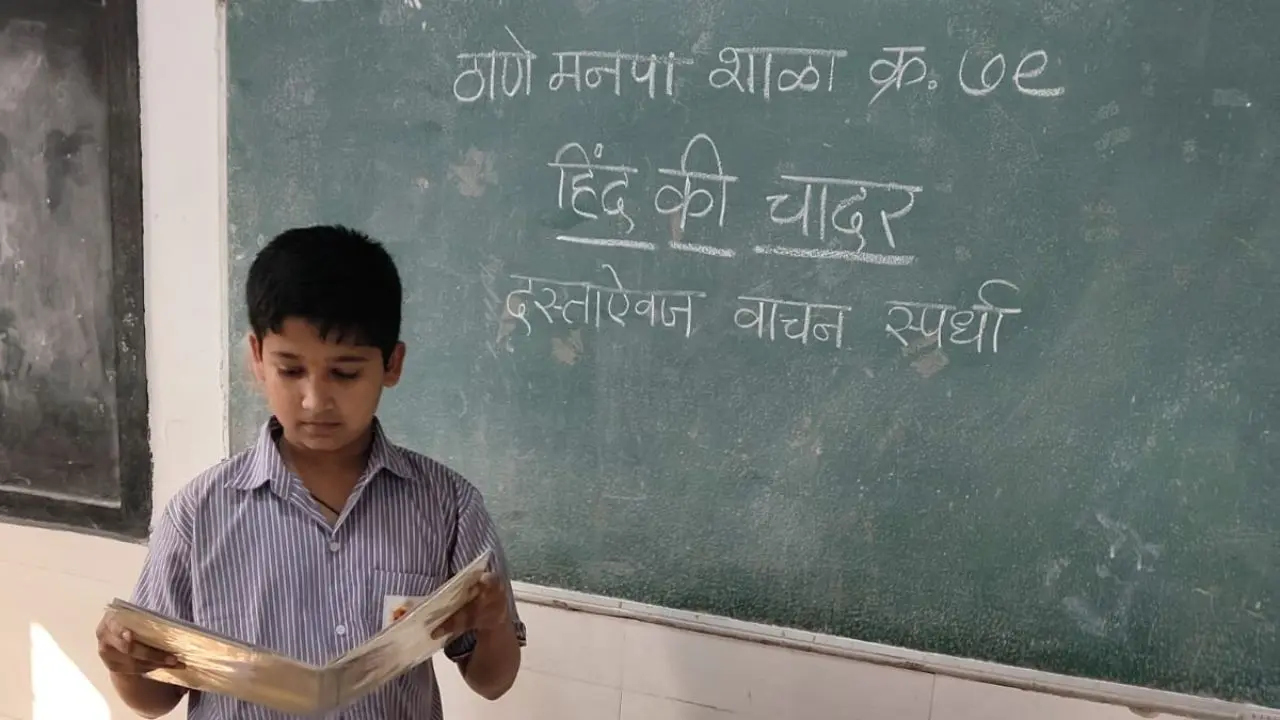 ठाणे मनपा शाळा क्र. ७९
हिंद की चादर
दस्ताऐवज वाचन स्पर्धा